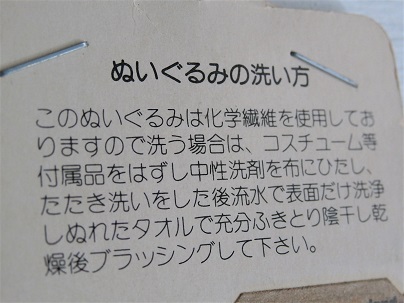 ぬいぐるみの洗い方
このぬいぐるみは化学繊維を使用してお
りますので洗う場合は、コスチューム等
付属品をはずし中性洗剤を布にひたし、
たたき洗いをした後流水で表面だけ洗浄
しぬれたタオルで充分ふきとり陰干し乾
燥後ブラッシングして下さい。